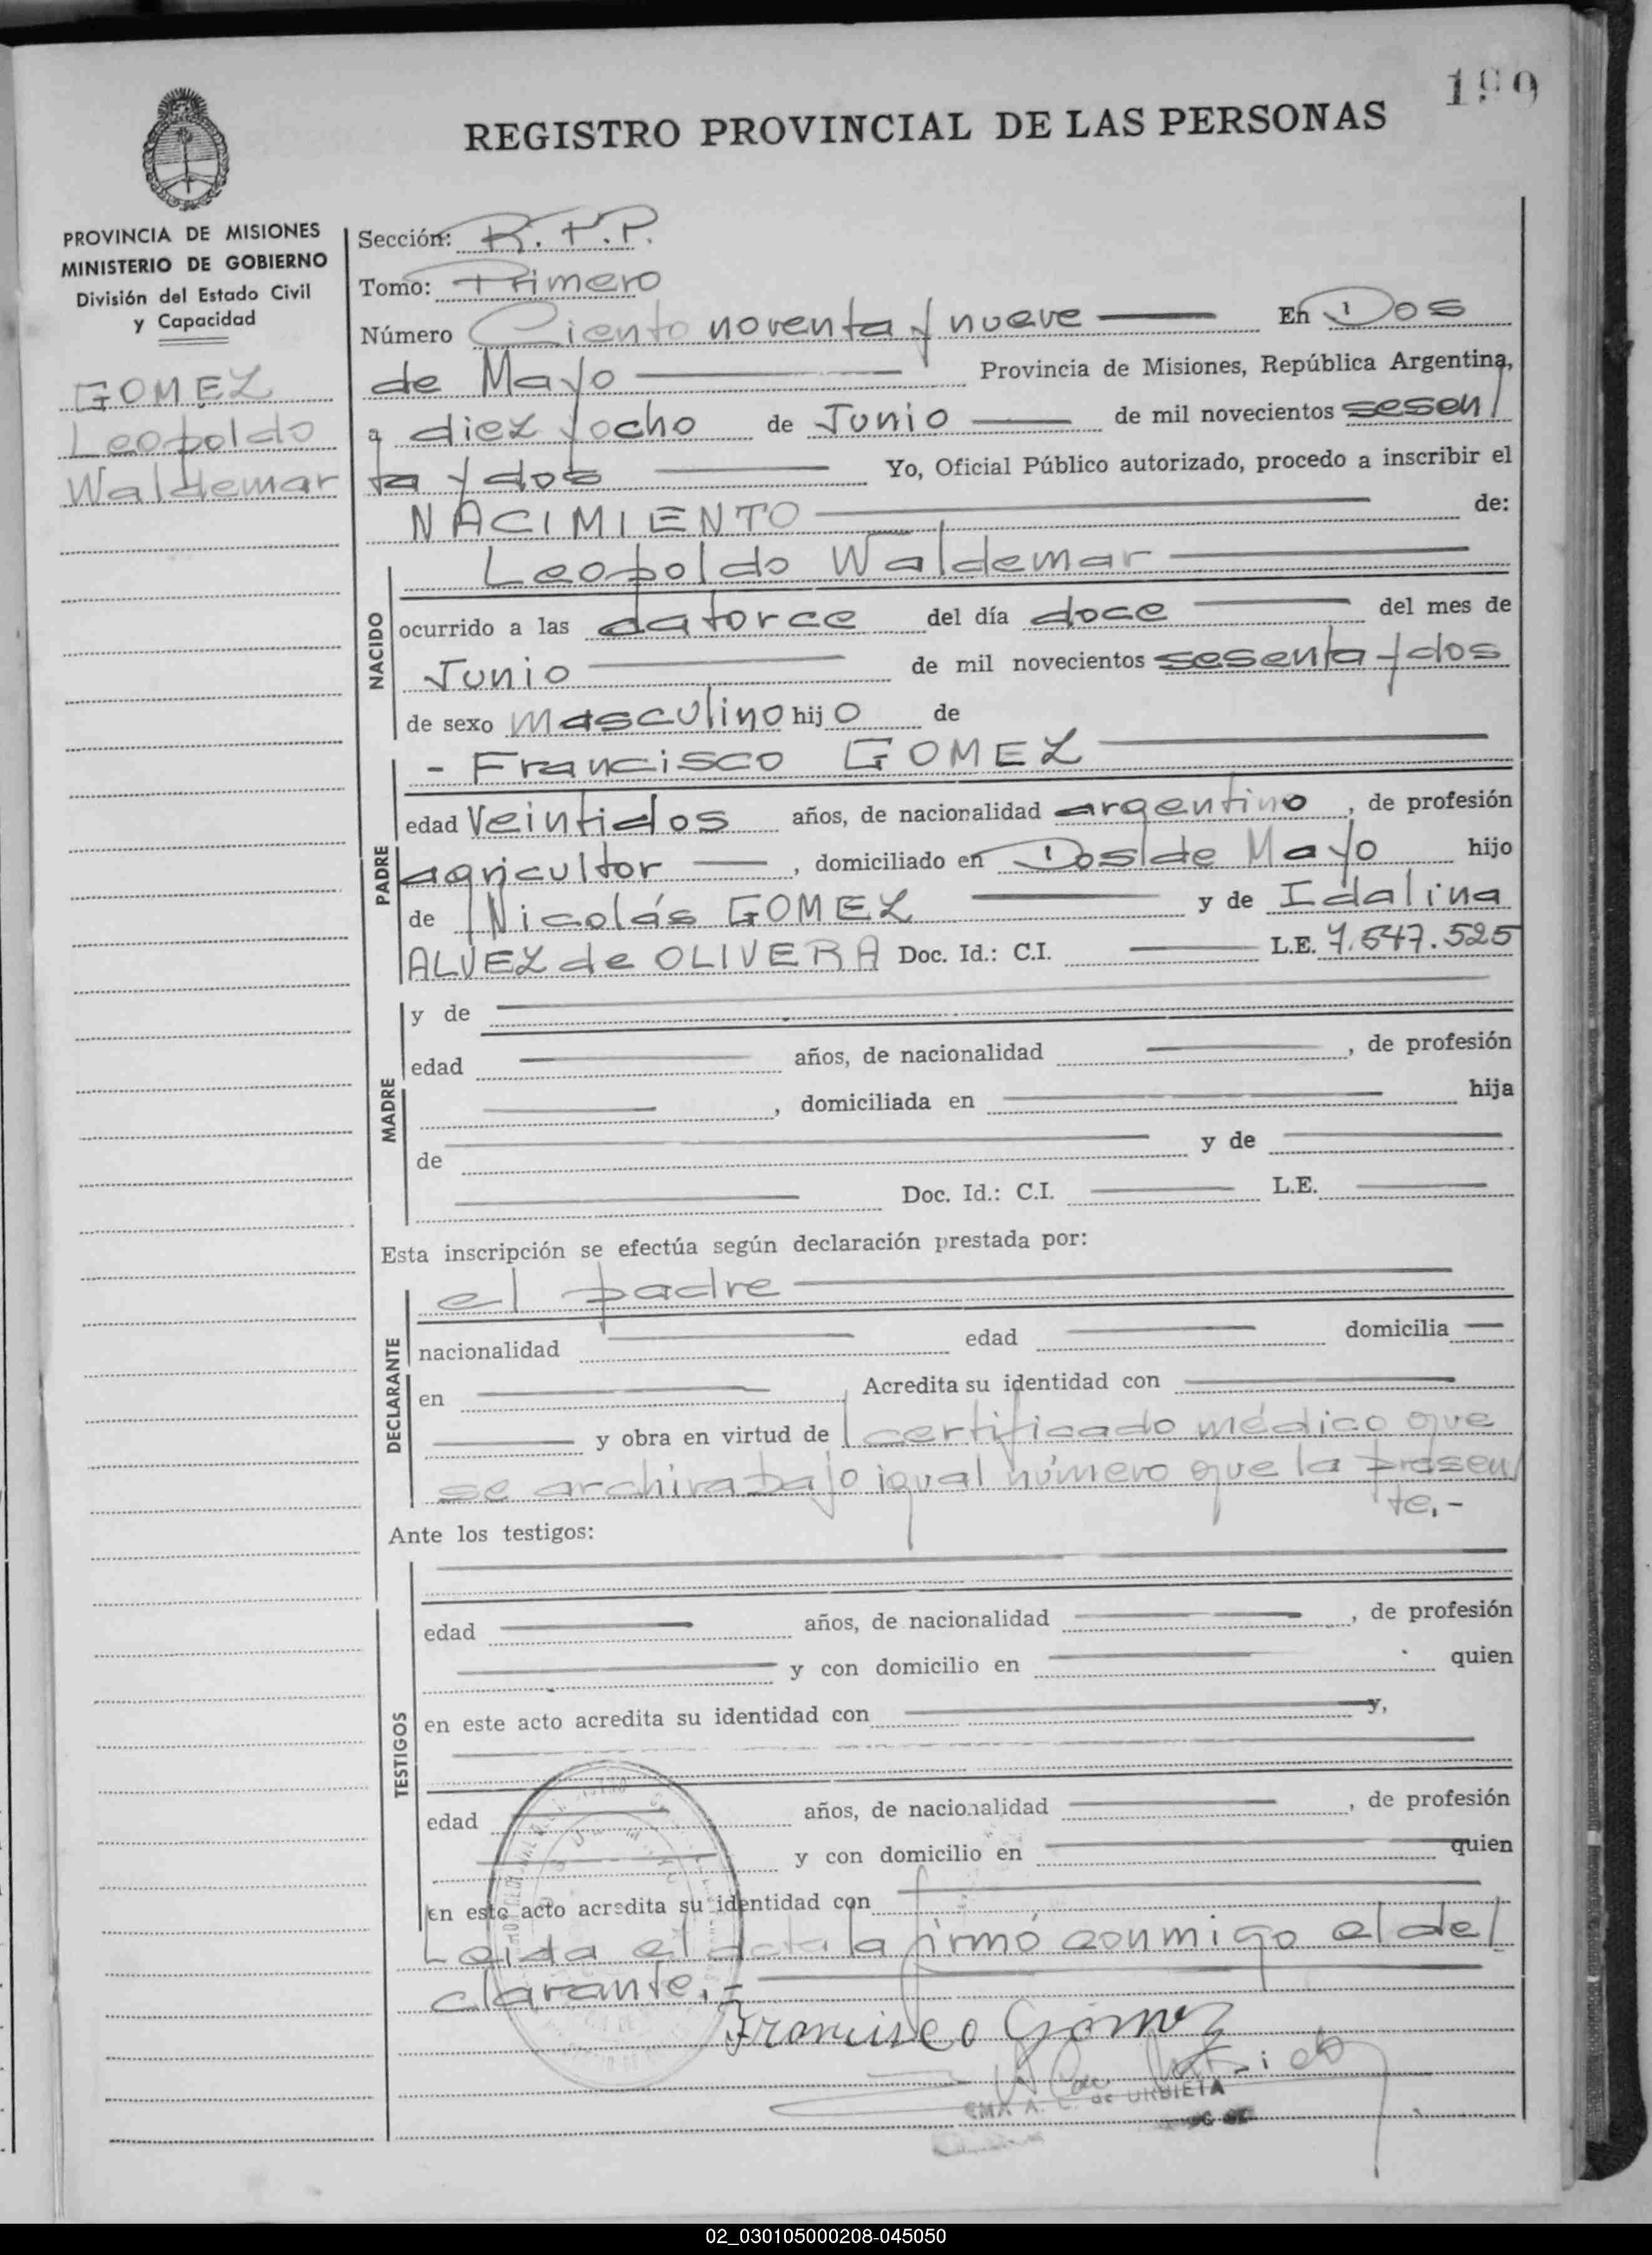 199
REGISTRO PROVINCIAL DE LAS PERSONAS
PROVINCIA DE MISIONES
MINISTERIO DE GOBIERNO
División del Estado Civil
y Capacidad
GOMEZ
Leopoldo
Waldemar
Sección: R.P.P.
Tomo: Primero
Número Ciento noventa y nueve En Dos
de Mayo Provincia de Misiones, República Argentina,
a diez y ocho de Junio de mil novecientos sesen
ta y dos Yo, Oficial Público autorizado, procedo a inscribir el
NACIMIENTO de:
NACIDO
Leopoldo Waldemar
ocurrido a las catorce del día doce del mes de
Junio de mil novecientos sesenta y dos
de sexo masculino hijo de
PADRE
- Francisco GOMEZ
edad Veintidos años, de nacionalidad argentino, de profesión
agricultor, domiciliado en Dos de Mayo hijo
de Nicolás GOMEZ y de Idalina
ALVEZ de OLIVERA Doc. Id.: C.I. L.E. 7.547.525
MADRE
y de
edad años, de nacionalidad , de profesión
, domiciliada en hija
de y de
Doc. Id.: C.I. L.E.
Esta inscripción se efectúa según declaración prestada por:
DECLARANTE
el padre
nacionalidad edad domicilia
en Acredita su identidad con
y obra en virtud de certificado médico que
se archiva bajo igual número que la presen
te.-
Ante los testigos:
TESTIGOS
edad años, de nacionalidad , de profesión
y con domicilio en quien
en este acto acredita su identidad con y,
edad años, de nacionalidad , de profesión
y con domicilio en quien
en este acto acredita su identidad con
Leida el acta la firmó conmigo el de
clarante.-
Francisco Gómez
A. C. de URBIETA
02_030105000208-045050